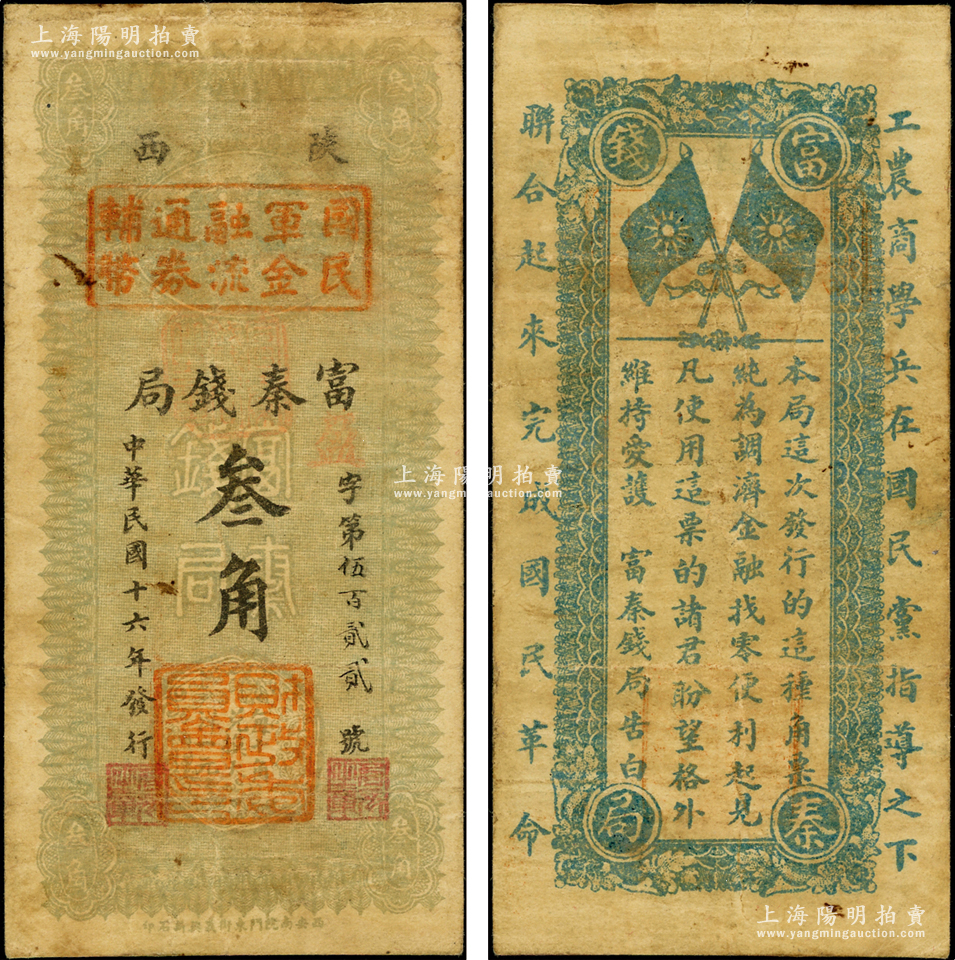 上海陽明拍賣
www.yangmingauction.com
叁角
角
陝西
國民
軍金
融流
通券
輔幣
富秦錢局
字第伍百貳貳號
叁角
中華民國十六年發行
富秦
錢局
叁角
叁角
西安南院門東街義興新石印
上海陽明拍賣
www.yangmingauction.com
工農商學兵在國民黨指導之下
聯合起來完成國民革命
富
錢
本局這次發行的這種角票
純為調濟金融找零便利起見
凡使用這票的諸君盼望格外
維持愛護 富秦錢局告白
秦
局
上海陽明拍賣
www.yangmingauction.com